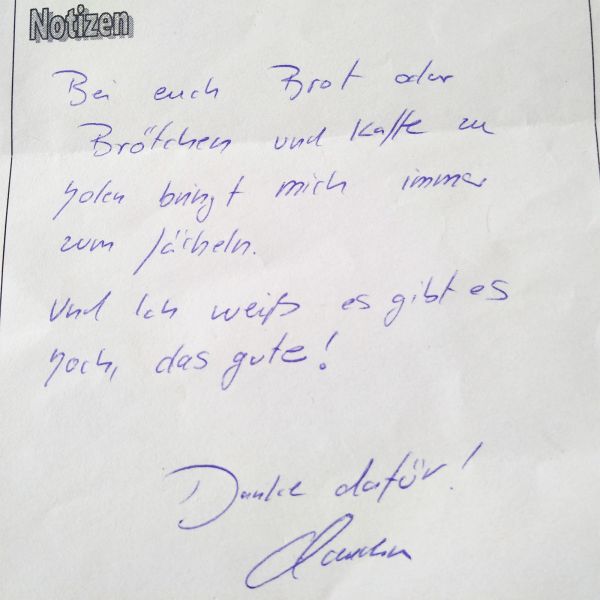 Notizen
Bei euch Brot oder
Brötchen und Kaffe zu
holen bringt mich immer
zum lächeln.
Und Ich weiß es gibt es
noch, das gute!
Danke dafür!